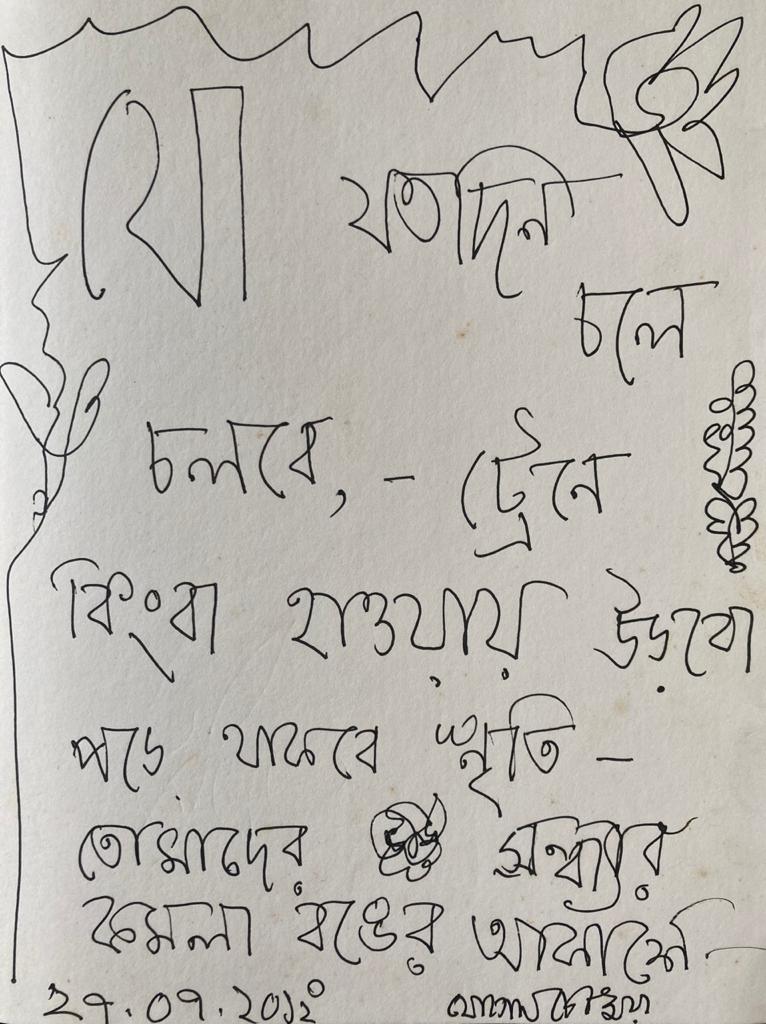 যতদিন
চলে
চলবে, - ট্রেনে
কিংবা হাওয়ায় উড়বো
পড়ে থাকবে স্মৃতি -
তোমাদের সন্ধ্যার
কমলা রঙের আকাশে -